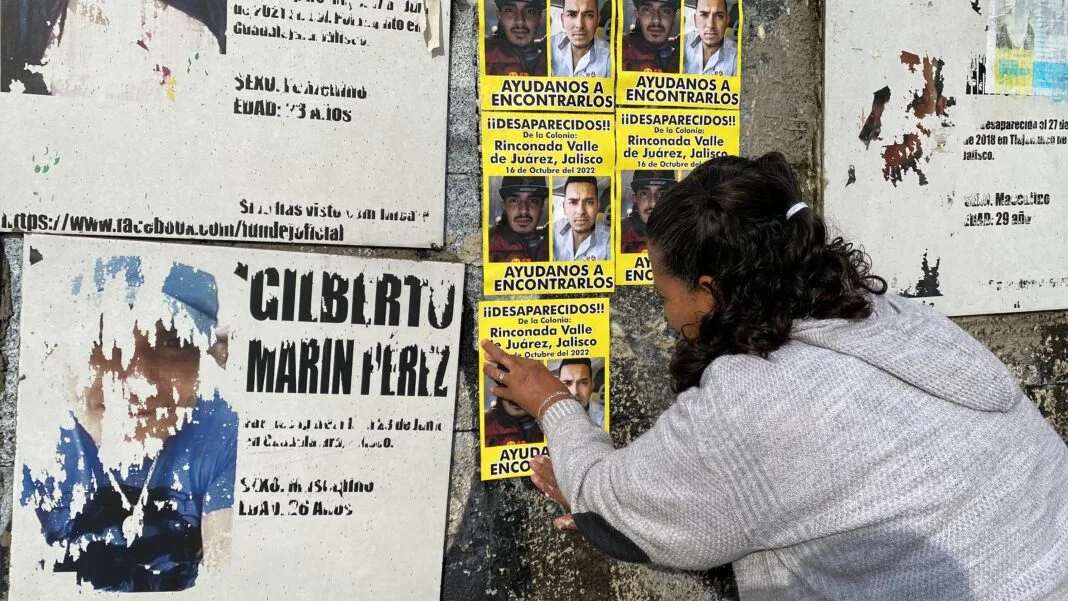 de 2021 en
Guadalajara, Jalisco.
SEXO: Femenino
EDAD: 23 AÑOS
Si lo has visto
https://www.facebook.com/fundejoficial
GILBERTO
MARIN PÉREZ
en Guadalajara, Jalisco.
SEXO: Masculino
EDAD: 26 AÑOS
AYUDANOS A
ENCONTRARLOS
AYUDANOS A
ENCONTRARLOS
¡¡DESAPARECIDOS!!
De la Colonia:
Rinconada Valle
de Juárez, Jalisco
16 de Octubre del 2022
AYUDANOS A
ENCONTRARLOS
¡¡DESAPARECIDOS!!
De la Colonia:
Rinconada Valle
de Juárez, Jalisco
16 de Octubre del 2022
AYUDANOS A
ENCONTRARLOS
¡¡DESAPARECIDOS!!
De la Colonia:
Rinconada Valle
de Juárez, Jalisco
de Octubre del 2022
AYUDANOS
ENCO
Desaparecida el 27 de
de 2018 en
Jalisco.
SEXO: Masculino
EDAD: 29 año